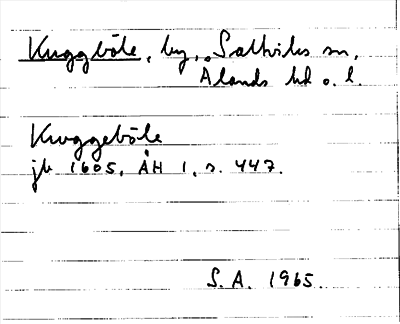 Kuggböle, by, Saltviks sn,
Ålands hd o. l.
Kuggeböle
jb 1605, ÅH 1, s. 447.
S. A. 1965.